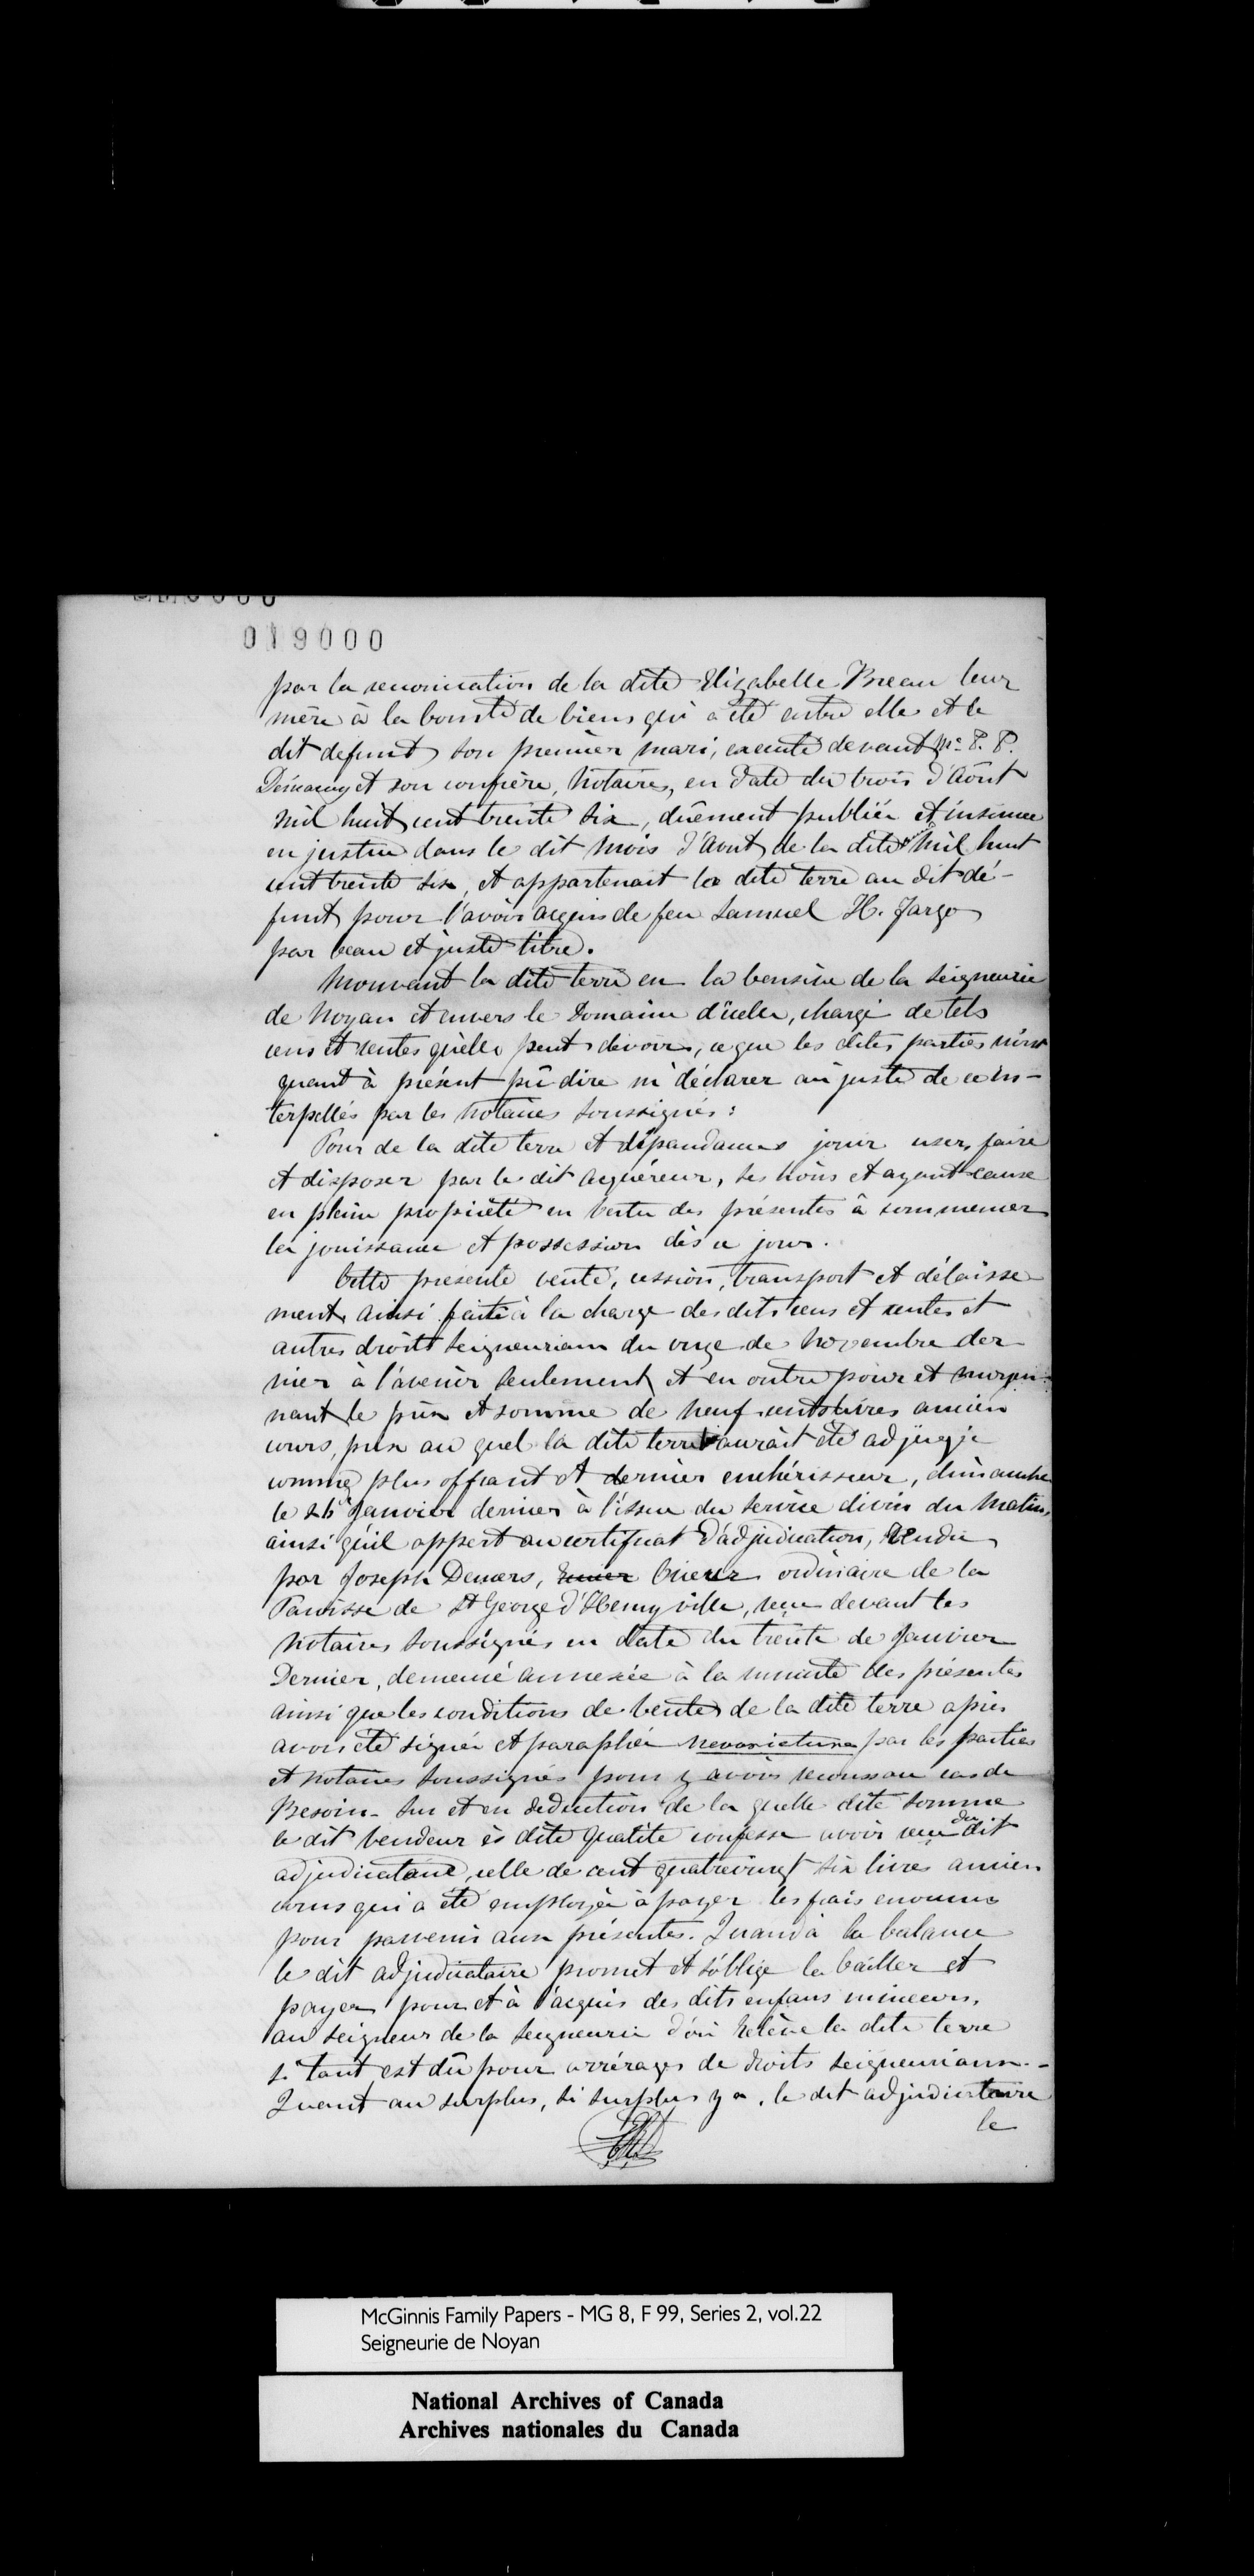 019000
par la renonciation de la dite Elizabelle Breau leur
mère à la comté de biens qui a été entre elle et le
dit defunt son premier mari, executé devant Me. P. P.
Démaray et son confrère, Notaires, en date du trois d'Août
mil huit cent trente six, dûement publiée et insinuée
en justice dans le dit mois d'Aout de la dite mil huit
cent trente six, et appartenait la dite terre au dit dé-
funt pour l'avoir acquis de feu Samuel H. Fargo
par beau et juste titre.
Mouvant la dite terre en la Censive de la Seigneurie
de Noyan et envers le Domaine d'icelle, chargé de tels
cens et rentes qu'elle peut devoir, ce que les dites parties n'ont
quant à présent pû dire ni déclarer au juste de ce in-
terpellés par les Notaires Soussignés:
Pour de la dite terre et dépandances jouir user, faire
et disposer par le dit acquéreur, ses hoirs et ayant cause
en pleine propriété en vertu des présentes à commencer
la jouissance et possession dès ce jour.
Cette présente vente, cession, transport et délaisse-
ment, ainsi faite à la charge des dits cens et rentes et
autres droits Seigneuriaux du onze de Novembre der-
nier à l'avenir seulement et en outre pour et moyen-
nant le prix et somme de neuf cents livres ancien
cours, prix au quel la dite terre aurait été adjugée
comme plus offrant et dernier enchérisseur, dimanche
le 26 Janvier dernier à l'issue du service divin du matin,
ainsi qu'il appert au certificat d'adjudication, Rendu
par Joseph Demers, Crieur ordinaire de la
Paroisse de St George d'Henryville, reçu devant les
Notaires Soussignés en date du trente de Janvier
Dernier, demeuré annexée à la minute des présentes
ainsi que les conditions de vente de la dite terre après
avoir été signée et paraphée nevarietur par les parties
et Notaires Soussignés pour y avoir recours au cas de
Besoin - Sur et en deduction de la quelle dite somme
le dit vendeur ès dite qualité confesse avoir reçu du dit
adjudicataire, celle de cent quatrevingt six livres ancien
cours qui a été employée à payer les frais encourus
pour parvenir aux présentes. Quand à la balance
le dit adjudicataire promet et s'oblige la bailler et
payer pour et à l'acquis des dits enfans mineurs,
au Seigneur de la Seigneurie d'où relève la dite terre
si tant est dû pour arrérages de droits Seigneuriaux. -
Quant au surplus, si surplus y a, le dit adjudicataire
le
McGinnis Family Papers - MG 8, F 99, Series 2, vol.22
Seigneurie de Noyan
National Archives of Canada
Archives nationales du Canada